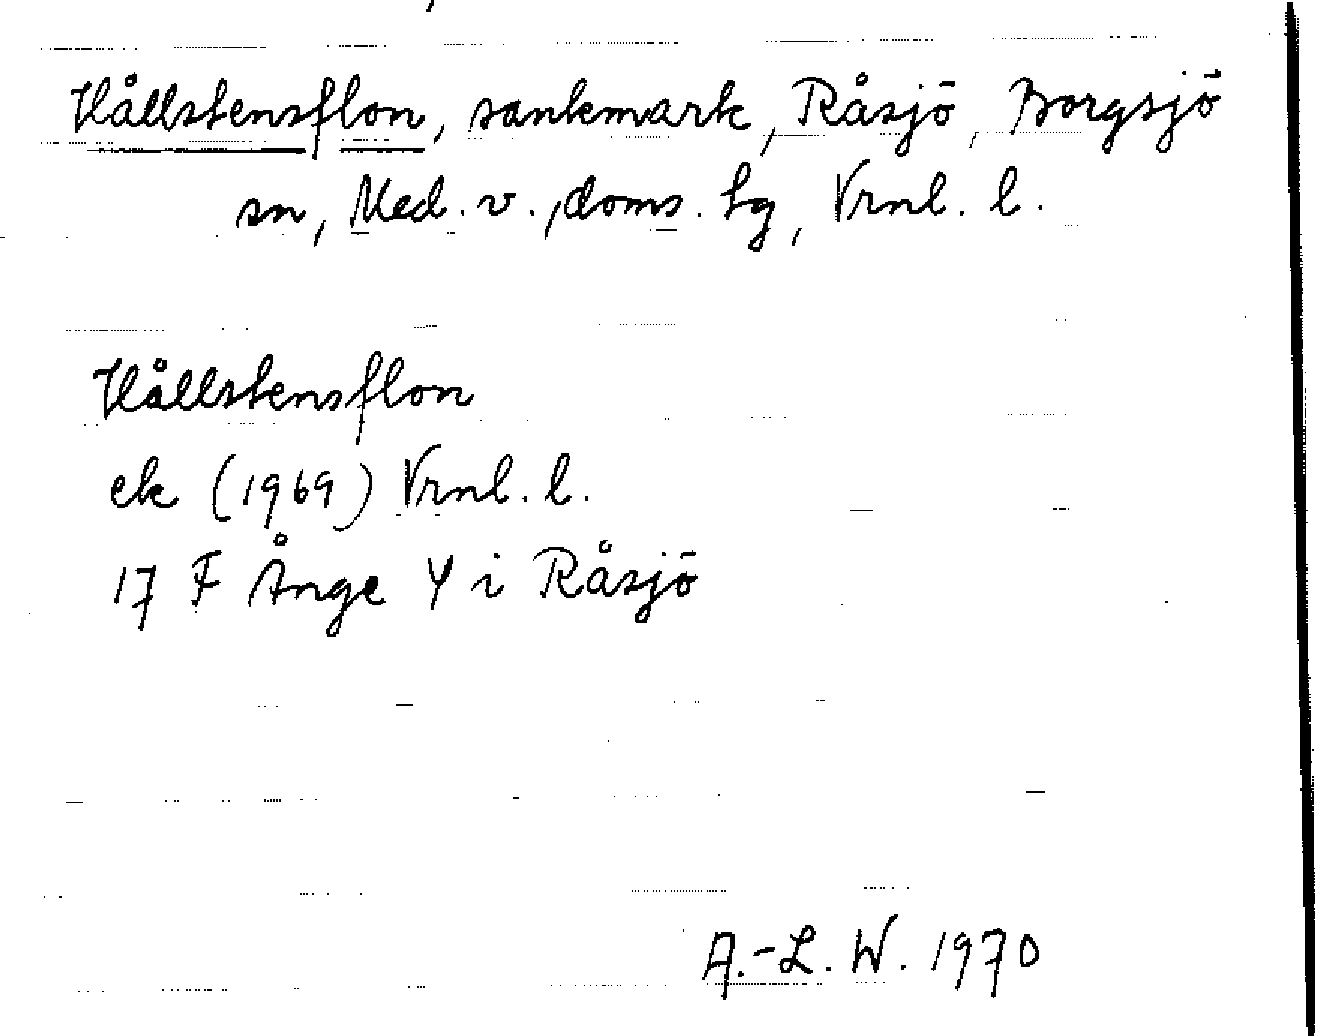 Hållstensflon, sankmark, Råsjö, Borgsjö
sn, Med. v., doms. hg, Vrnl. l.
Hållstensflon
ek (1969) Vrnl. l.
17 F Ånge Y i Råsjö
A.-L. W. 1970